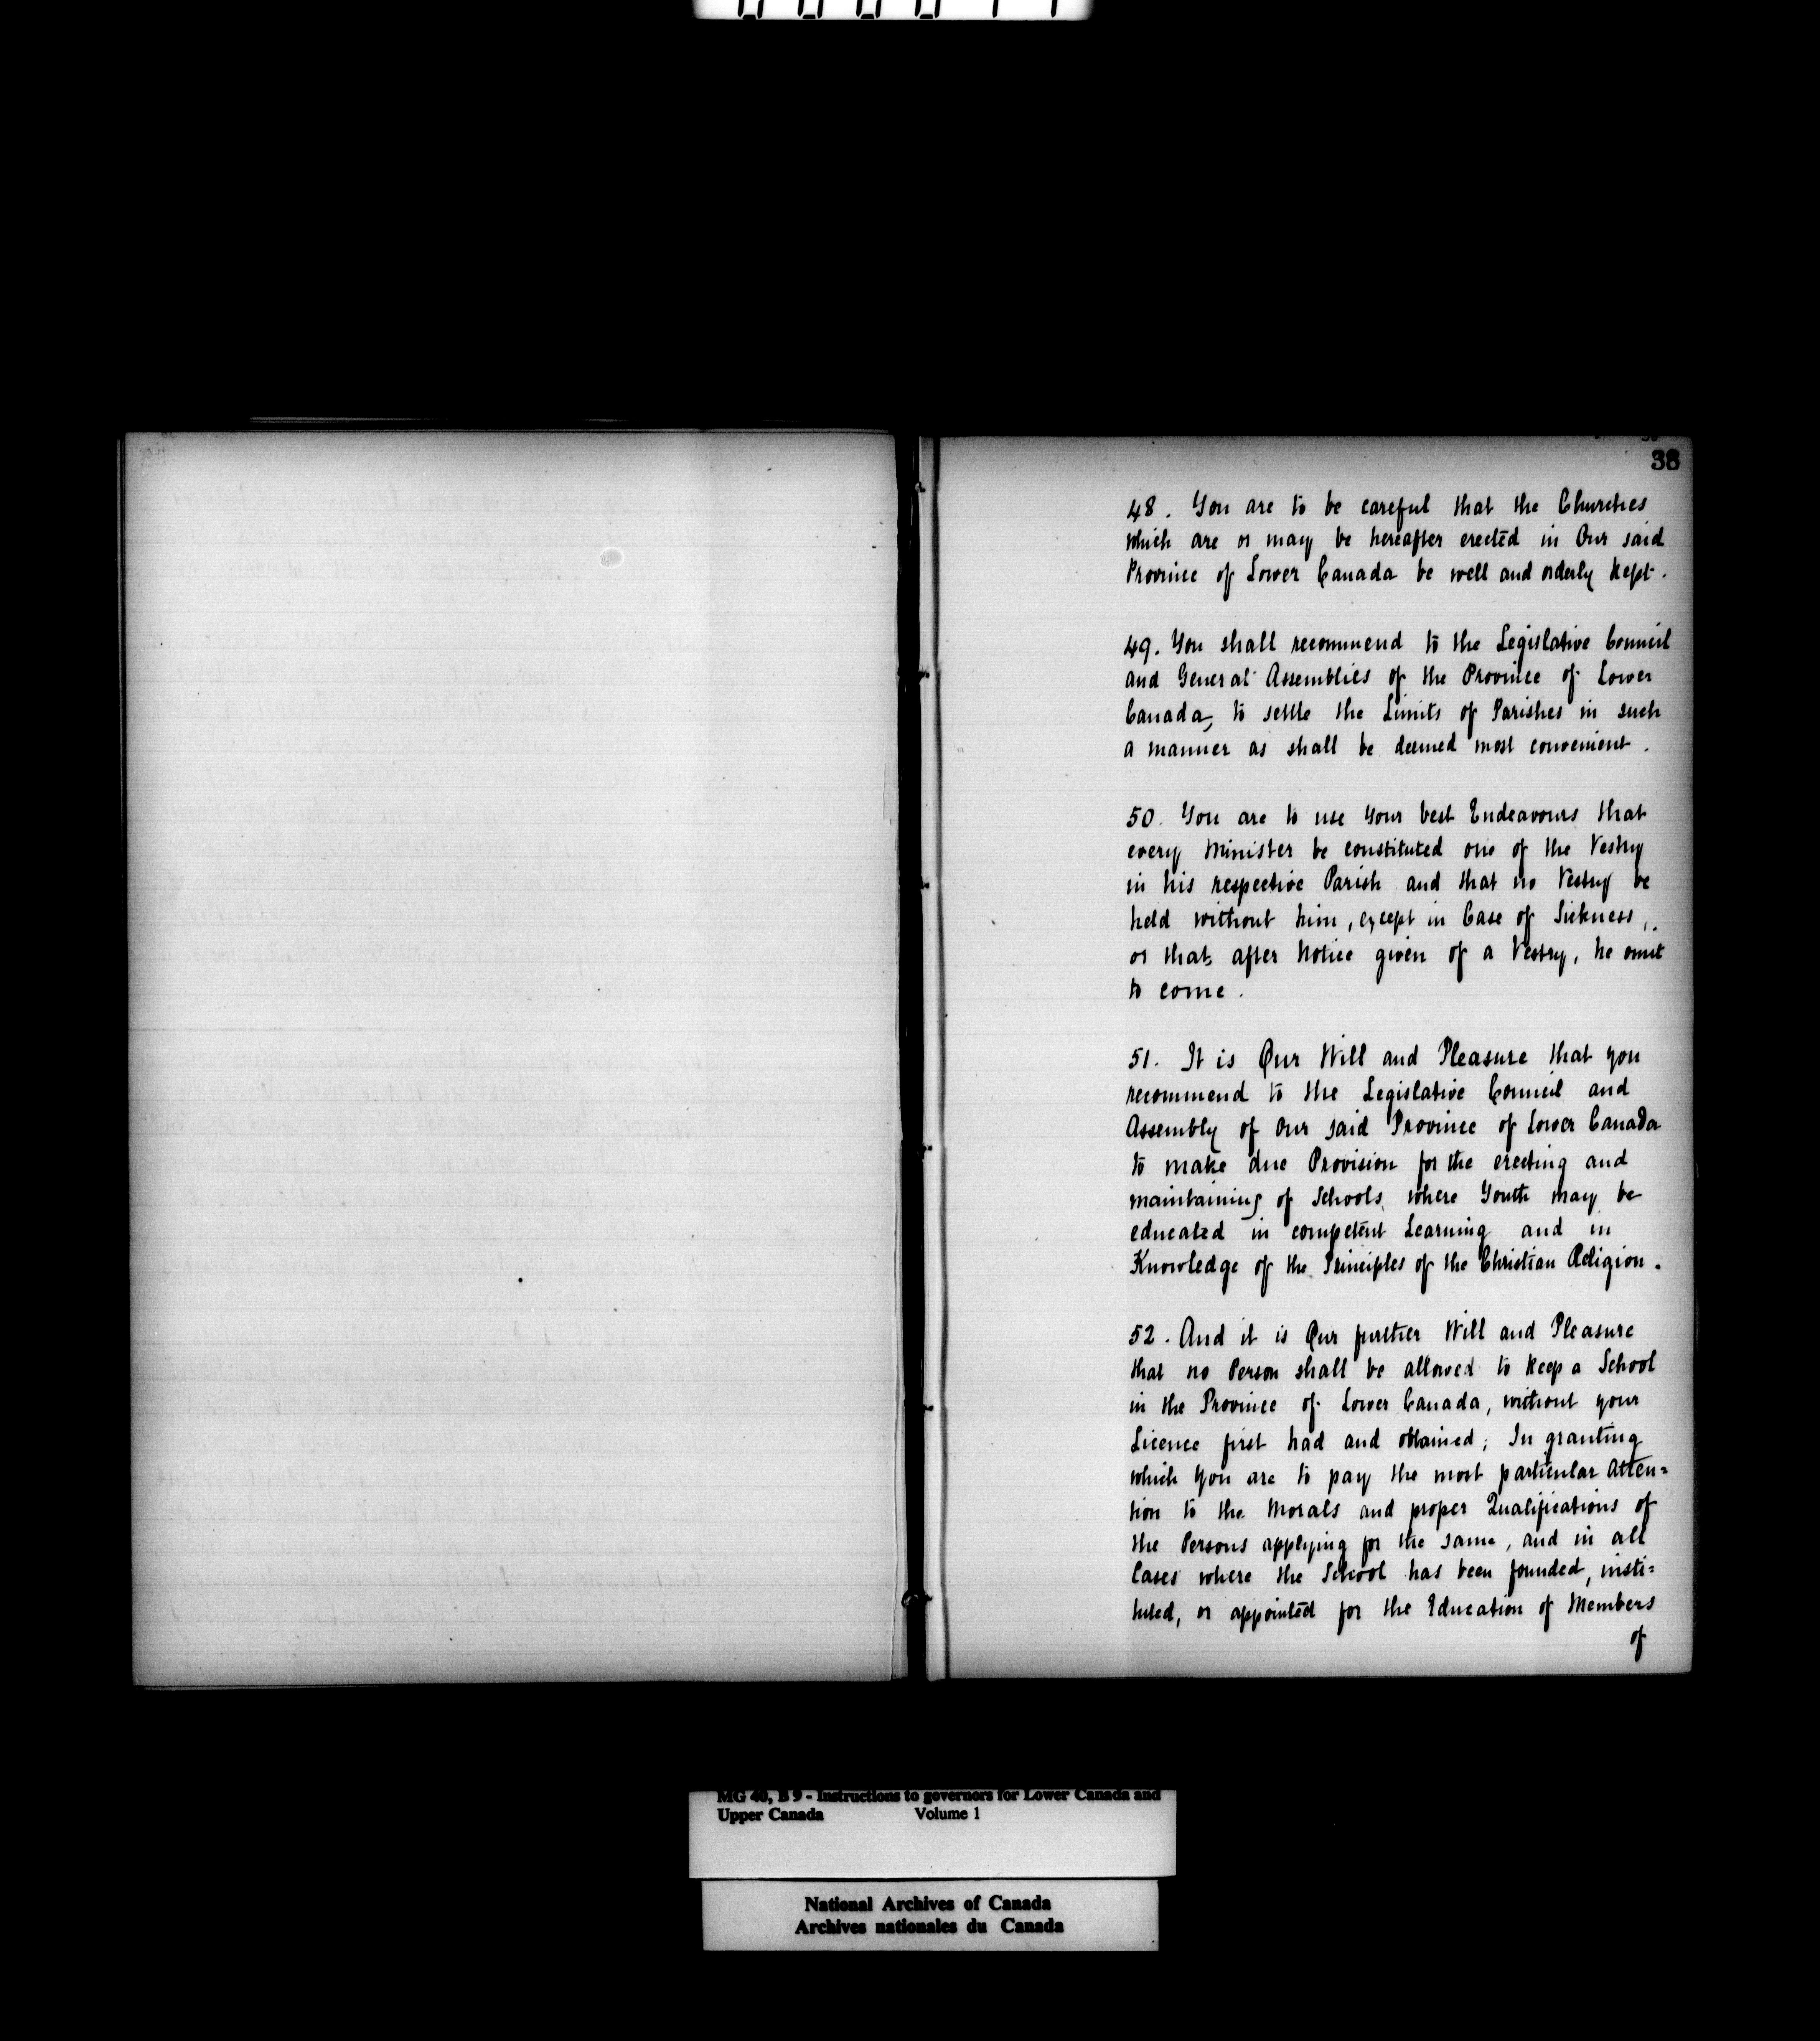 38
48. You are to be careful that the Churches
which are or may be hereafter erected in Our said
Province of Lower Canada be well and orderly kept.
49. You shall recommend to the Legislative Council
and General Assemblies of the Province of Lower
Canada, to settle the Limits of Parishes in such
a manner as shall be deemed most convenient.
50. You are to use your best Endeavours that
every Minister be constituted one of the Vestry
in his respective Parish and that no Vestry be
held without him, except in Case of Sickness,
or that after Notice given of a Vestry, he omit
to come.
51. It is Our Will and Pleasure that you
recommend to the Legislative Council and
Assembly of Our said Province of Lower Canada
to make due Provision for the erecting and
maintaining of Schools, where Youth may be
educated in competent Learning and in
Knowledge of the Principles of the Christian Religion.
52. And it is Our further Will and Pleasure
that no Person shall be allowed to keep a School
in the Province of Lower Canada, without your
Licence first had and obtained; In granting
which you are to pay the most particular Atten=
tion to the Morals and proper Qualifications of
the Persons applying for the same, and in all
Cases where the School has been founded, insti=
tuted, or appointed for the Education of Members
of
MG 40, B 9 - Instructions to governors for Lower Canada and
Upper Canada Volume 1
National Archives of Canada
Archives nationales du Canada